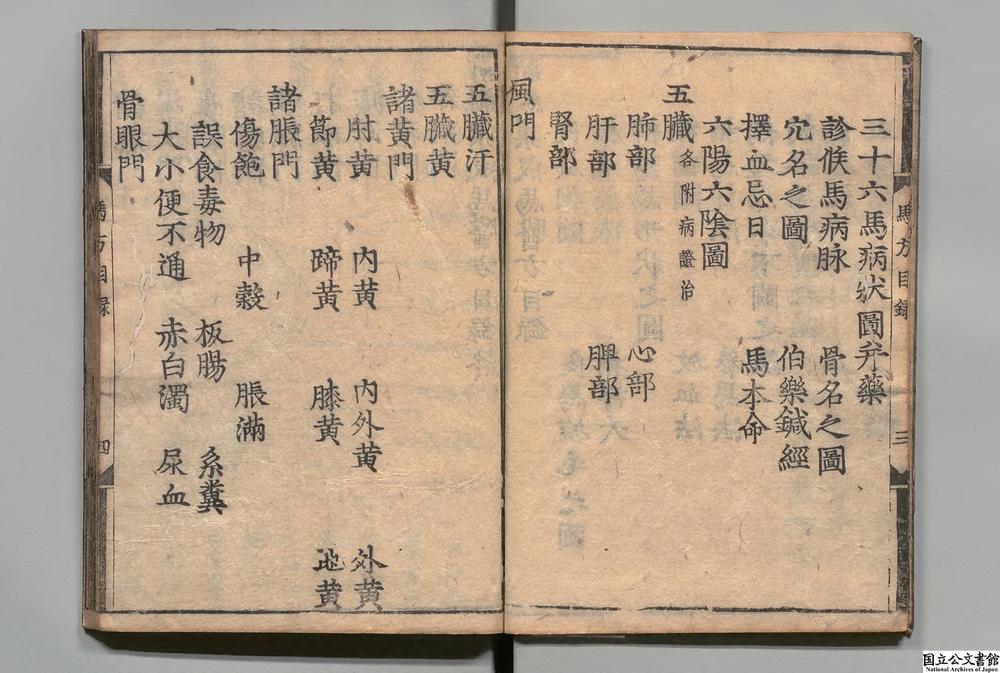 三十六馬病狀圖弁藥
診候馬病脉　骨名之圖
穴名之圖　伯樂鍼經
擇血忌日　馬本命
六陽六陰圖
五臟各附病證治
肺部　心部
肝部　脾部
腎部
風門
馬方目錄　三
五臟汗
五臟黃
諸黃門
肘黃　內黃　內外黃　外黃
節黃　蹄黃　膝黃
諸脹門
傷飽　中穀　脹滿
誤食毒物　板腸　系糞
大小便不通　赤白濁　尿血
骨眼門
馬方目錄　四
国立公文書館
National Archives of Japan